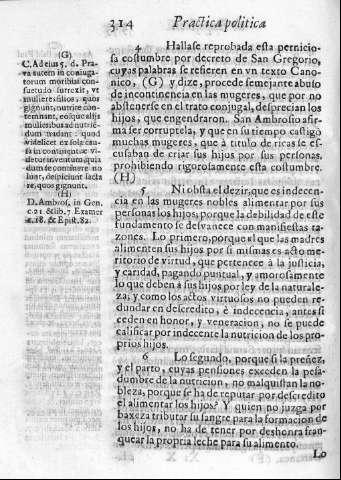 314 Practica politica
(G)
C. Ad eius 5. d. Pra-
va autem in coniuga-
torum moribus con-
suetudo surrexit, vt
mulieres filios, quos
gignunt, nutrire con-
temnant, eoque alijs
mulieribus ad nutrie-
dum tradant: quod
videlicet ex sola cau-
sa incontinentiæ vi-
detur inventum, quia
dum se continere no-
lunt, despiciunt lacta
re, quos gignunt.
(H)
D. Ambros. in Gen.
c. 21. & lib. 7 Examer
c. 18. & Epist. 82.
4 Hallase reprobada esta pernicio-
sa costumbre por decreto de San Gregorio,
cuyas palabras se refieren en vn texto Cano-
nico, (G) y dize, procede semejante abuso
de incontinencia en las mugeres, que por no
abstenerse en el trato conjugal, desprecian los
hijos, que engendraron. San Ambrosio afir-
ma ser corruptela, y que en su tiempo castigò
muchas mugeres, que à titulo de ricas se es-
cusaban de criar sus hijos por sus personas,
prohibiendo rigorosamente esta costumbre.
(H)
5 Ni obsta el dezir, que es indecen-
cia en las mugeres nobles alimentar por sus
personas los hijos, porque la debilidad de este
fundamento se desvanece con manifiestas ra-
zones. Lo primero, porque el que las madres
alimenten sus hijos por si mismas es acto me-
ritorio de virtud, que pertenece à la justicia,
y caridad, pagando puntual, y amorosamente
lo que deben à sus hijos por ley de la naturale-
za; y como los actos virtuosos no pueden re-
dundar en descredito, è indecencia, antes si
ceden en honor, y veneracion, no se puede
calificar por indecente la nutricion de los pro-
prios hijos.
6 Lo segundo, porque si la preñez,
y el parto, cuyas pensiones exceden la pesa-
dumbre de la nutricion, no malquistan la no-
bleza, porque se ha de reputar por descredito
el alimentar los hijos? Y quien no juzga por
baxeza tributar su sangre para la formacion de
los hijos, no ha de tener por deshonra fran-
quear la propria leche para su alimento.
Lo